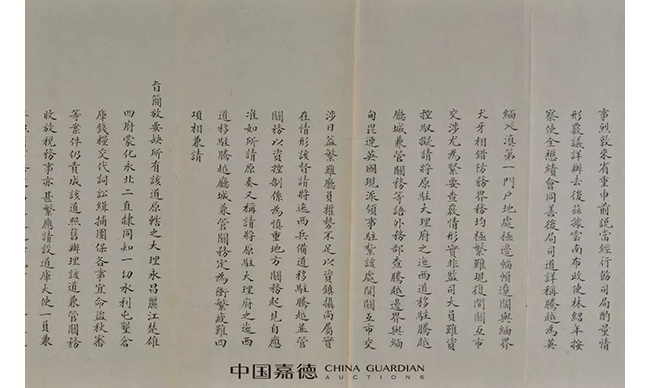 事烈敦來省重申前說當經行飭司局酌量情
形覈議詳辦去後茲據雲南布政使林紹年按
察使全懋績會同善後局司道詳稱騰越為英
緬入滇第一門戶地處極邊幅遼闊與緬界
犬牙相錯防務界務均極繁難現復開關互市
交涉尤為緊要查覈情形實非監司大員難資
控馭擬請將原駐大理府之迤西道移駐騰越
廳城兼管關務等語外務部查騰越邊界與緬
甸毘連英國現派領事駐紮該處開關互市交
涉日益繁難廳員權勢不足以資鎮攝尚屬實
在情形該督請將迤西兵備道移駐騰越並管
關務以資控制係為慎重地方關務起見自應
准如所請原奏又稱請將原駐大理府之迤西
道移駐騰越廳城兼管關務定為衝繁疲難四
項相兼請
旨簡放要缺所有該道原轄之大理永昌麗江楚雄
四府蒙化永北二直隸同知一切水利屯墾倉
庫錢糧交代詞訟緝捕團保各事宜命盜秋審
等案件仍責成該道照舊辦理該道兼管關務
收放稅務事亦甚繁應請設道庫大使一員兼
中国嘉德 CHINA GUARDIAN
AUCTIONS